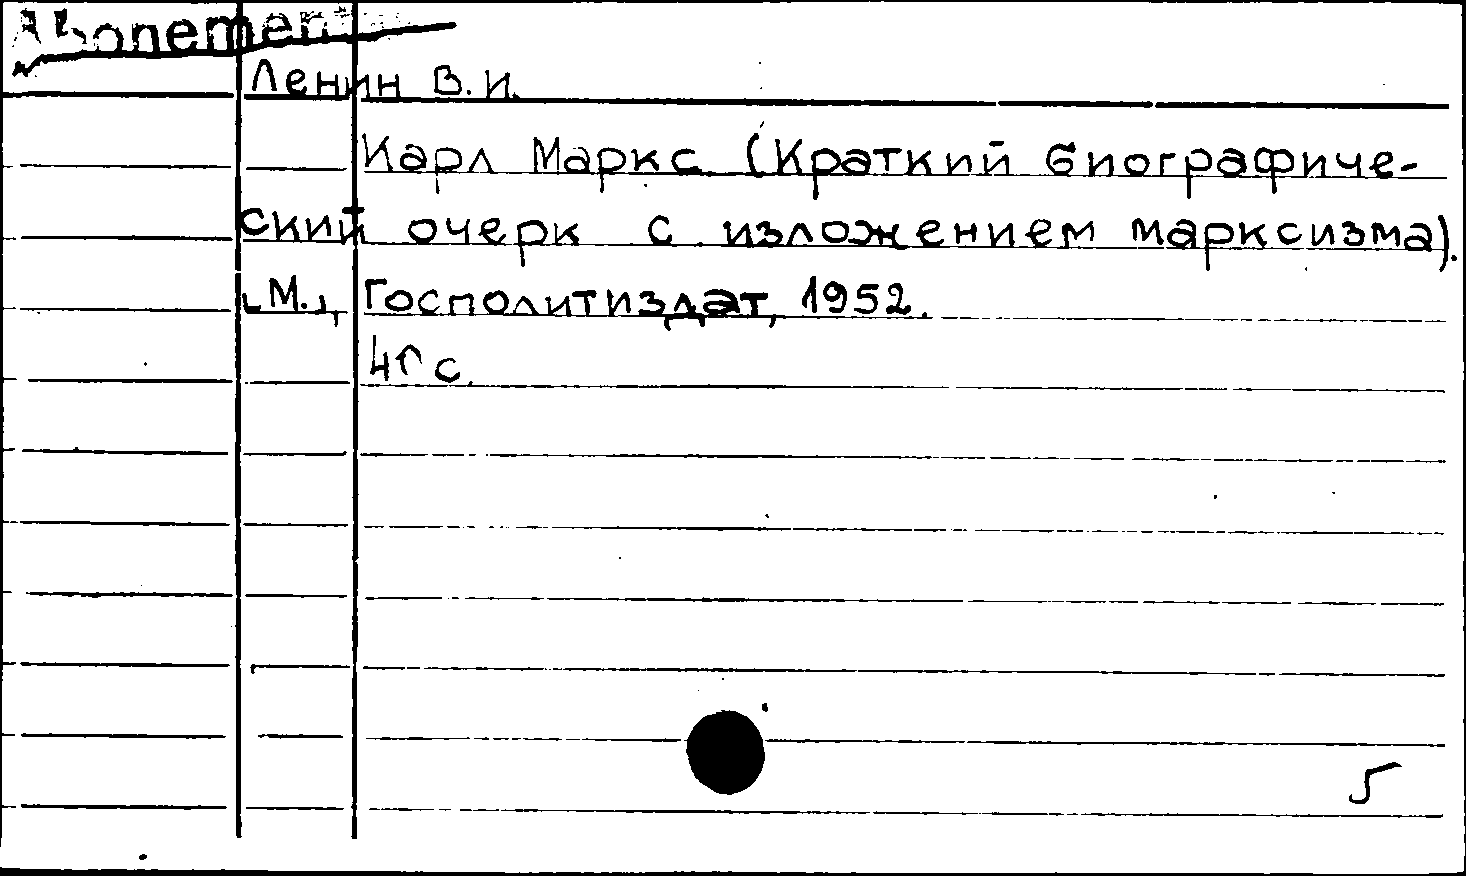 Abonement
Ленин В.И.
Карл Маркс (Краткий биографиче-
ский очерк с изложением марксизма).
[М.], Госполитиздат, 1952.
с.
5